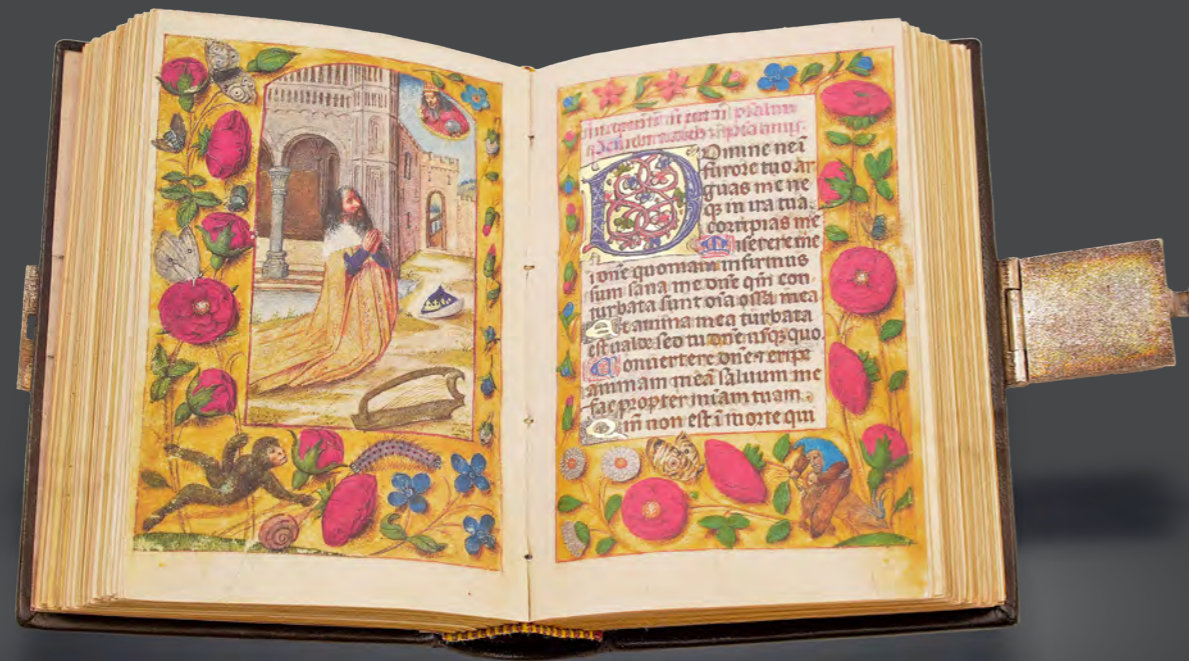 Domine nei
furore tuo ar
guas me ne
qȝ in ira tua
corripias me
Miserere me
i dn̄e quoniam infirmus
sum sana me dn̄e qm̄ con
turbata sunt oīa ossa mea
Et anima mea turbata
est valde sed tu dn̄e usqȝ quo
Convertere dn̄e et eripe
animam meā salvum me
fac propter mīam tuam
Qm̄ non est ī morte qui